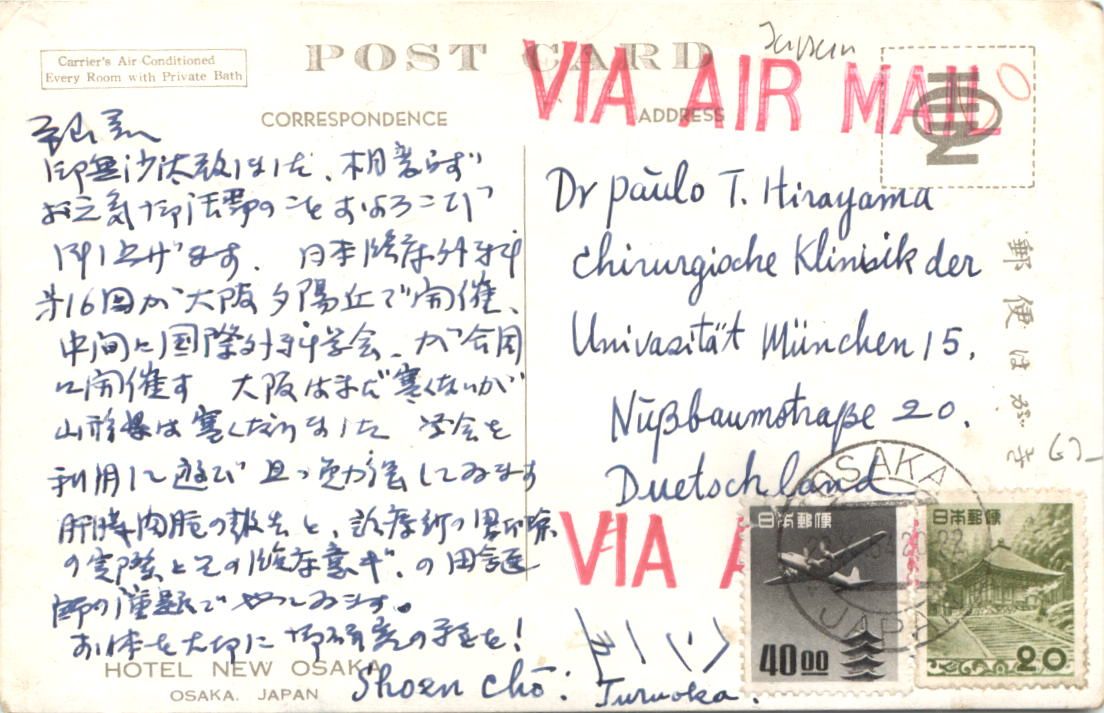 Carrier's Air-Conditioned
Every Room with Private Bath
POST CARD
CORRESPONDENCE
ADDRESS
VIA AIR MAIL
御無沙汰致しました、相変らず
お元気で御活躍のことおよろこび
申し上げます。日本臨床外科
第16回が大阪夕陽丘で開催、
中間に国際外科学会、が合同
に開催す 大阪はまだ寒くないが
山形県は寒くなりました 学会を
利用して遊び且つ勉強してみます
の報告と、診療所の
の実際とその臨床意義、の
の演題でやってみます。
お体を大切に御研究の程を!
Shoen Chō:
Turuoka.
HOTEL NEW OSAKA
OSAKA, JAPAN
Dr Paulo T. Hirayama
Chirurgische Klinisik der
Univasität München 15.
Nüßbaumstraße 20.
Duetschland
郵便はがき
VIA A
OSAKA
JAPAN
日本郵便
40.00
日本郵便
20